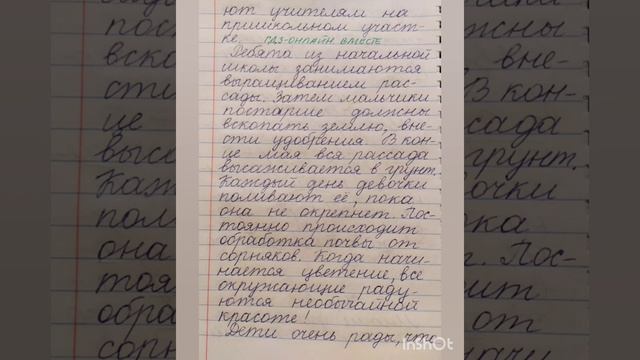 ют учителям на
пришкольном участ-
ке. ГДЗ-ОНЛАЙН ВМЕСТЕ
Ребята из начальной
школы занимаются
выращиванием рас-
сады. Затем мальчики
постарше должны
вскопать землю, вне-
сти удобрения. В кон-
це мая вся рассада
высаживается в грунт.
Каждый день девочки
поливают её, пока
она не окрепнет. Пос-
тоянно происходит
обработка почвы от
сорняков. Когда начи-
нается цветение, все
окружающие раду-
ются необычайной
красоте!
Дети очень рады, что
InShOt